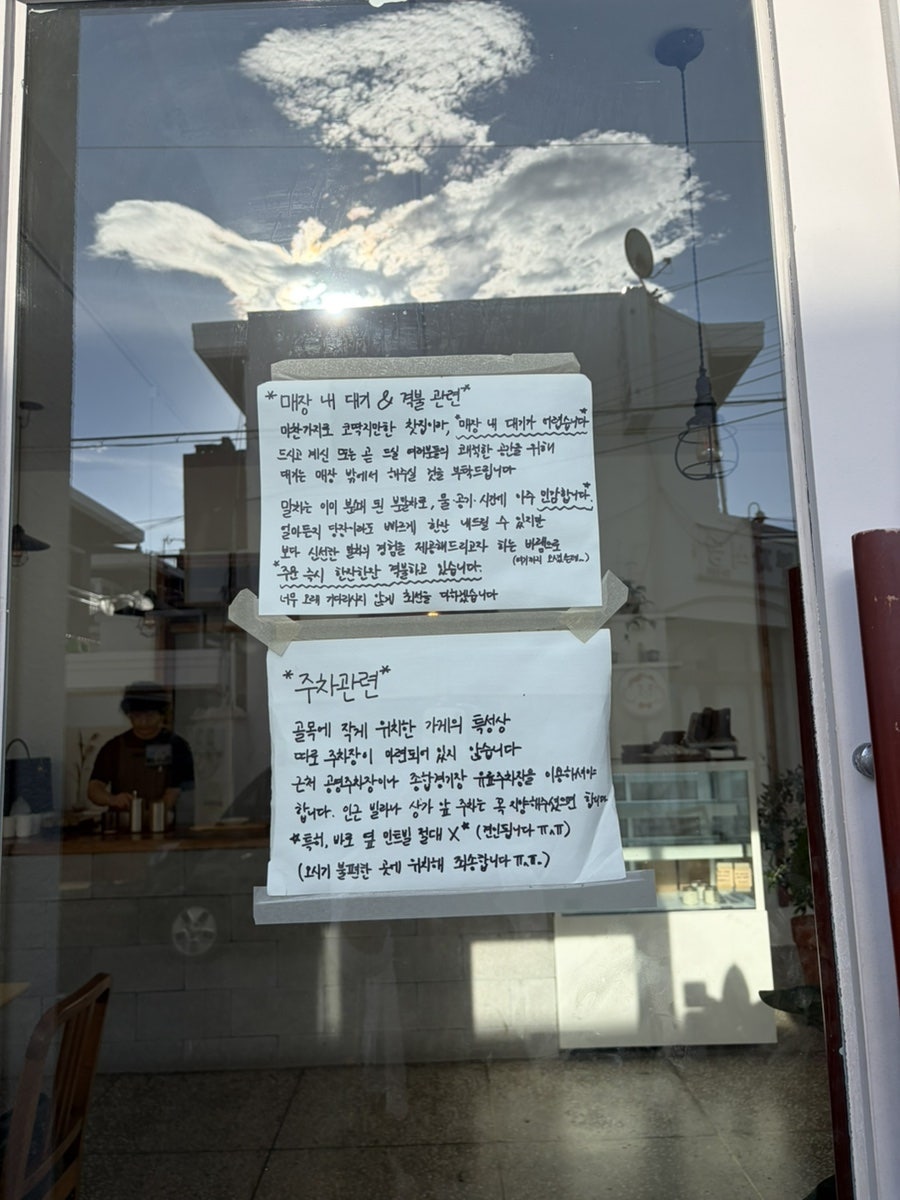 *매장 내 대기 & 격불 관련*
마찬가지로 코딱지만한 찻집이라, *매장 내 대기가 어렵습니다*
드시고 계신 또는 곧 드실 여러분들의 쾌적한 공간을 위해
대기는 매장 밖에서 해주실 것을 부탁드립니다
말차는 이미 분쇄 된 분말차로, 물·공기·시간에 아주 민감합니다*.
얼마든지 당장이라도 빠르게 한잔 내드릴 수 있지만
보다 신선한 말차의 경험을 제공해드리고자 하는 바램으로
(여기까지 오셨는데..)
*주문 즉시 한잔한잔 격불하고 있습니다.
너무 오래 기다리시지 않게 최선을 다하겠습니다
*주차관련*
골목에 작게 위치한 가게의 특성상
따로 주차장이 마련되어 있지 않습니다
근처 공영주차장이나 종합경기장 유료주차장을 이용하셔야
합니다. 인근 빌라나 상가 앞 주차는 꼭 지양해주셨으면 합니다.
*특히, 바로 옆 민트빌 절대 X* (견인됩니다 ㅠ.ㅠ)
(오시기 불편한 곳에 위치해 죄송합니다 ㅠ.ㅠ.)